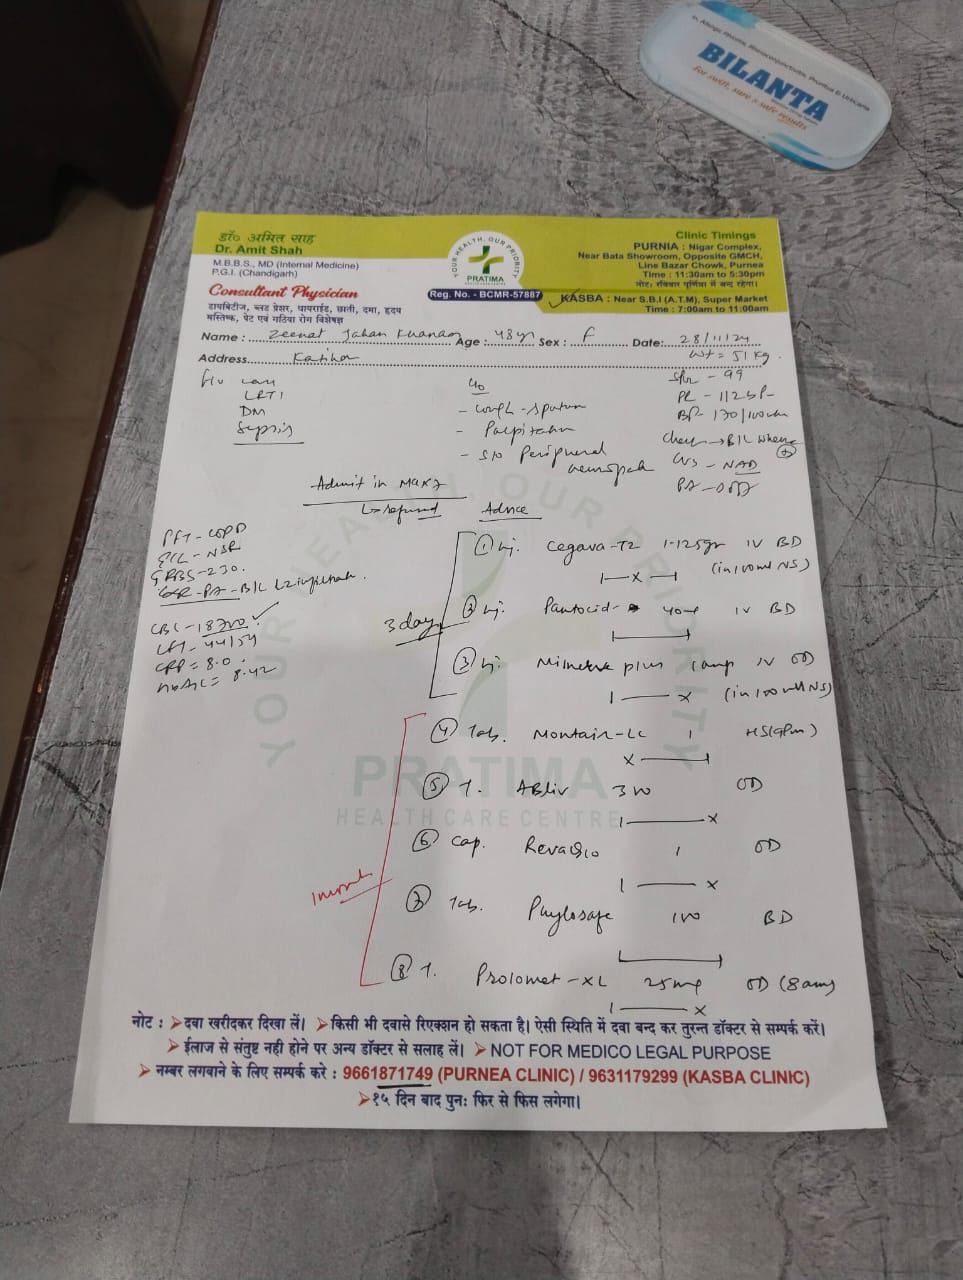 In Allergic Rhinitis, Rhinoconjunctivitis, Pruritus & Urticaria
BILANTA
For swift, sure & safe results
डॉ० अमित साह
Dr. Amit Shah
M.B.B.S., MD (Internal Medicine)
P.G.I. (Chandigarh)
Consultant Physician
डायबिटीज, ब्लड प्रेशर, थायराईड, छाती, दमा, हृदय
मस्तिष्क, पेट एवं गठिया रोग विशेषज्ञ
YOUR HEALTH, OUR PRIORITY
PRATIMA
HEALTH CARE CENTRE
Reg. No. - BCMR-57887
Clinic Timings
PURNIA : Nigar Complex,
Near Bata Showroom, Opposite GMCH,
Line Bazar Chowk, Purnea
Time : 11:30am to 5:30pm
नोट: रविवार पूर्णिया में बन्द रहेगा।
KASBA : Near S.B.I (A.T.M), Super Market
Time : 7:00am to 11:00am
Name : Zeenat Jahan Khanam Age : 43yr Sex : F Date: 28/11/24
Address Katihar wt = 51 kg
LRTI
DM
Sepsis
c/o
- Cough - Sputum
- Palpitation
- S/o Peripheral
- 99
PR - 112
BP - 130/100
Chest → B/L Wheeze +
CVS - NAD
Admit in
Refused
Advice
PFT - COPD
ECG - NSR
GRBS - 230
CXR - PA - B/L
CBC - 18700 ✓
LFT - 44/54
CRP = 8.0
HbA1C = 8.42
3 day
① Inj. Cegava-TZ 1.125gm IV BD
(in 100ml NS)
② Inj. Pantocid 40mg IV BD
③ Inj. plus 1 amp IV OD
(in 100ml NS)
④ Tab. Montair-LC 1 HS (9pm)
⑤ T. ABliv 300 OD
⑥ Cap. 1 OD
⑦ Tab. Phylosafe 100 BD
⑧ T. Prolomet-XL 25mg OD (8am)
YOUR HEALTH, OUR PRIORITY
PRATIMA
HEALTH CARE CENTRE
नोट : ➤दवा खरीदकर दिखा लें। ➤किसी भी दवासे रिएक्शन हो सकता है। ऐसी स्थिति में दवा बन्द कर तुरन्त डॉक्टर से सम्पर्क करें।
➤ईलाज से संतुष्ट नही होने पर अन्य डॉक्टर से सलाह लें। ➤NOT FOR MEDICO LEGAL PURPOSE
➤नम्बर लगवाने के लिए सम्पर्क करे : 9661871749 (PURNEA CLINIC) / 9631179299 (KASBA CLINIC)
➤१५ दिन बाद पुनः फिर से फिस लगेगा।